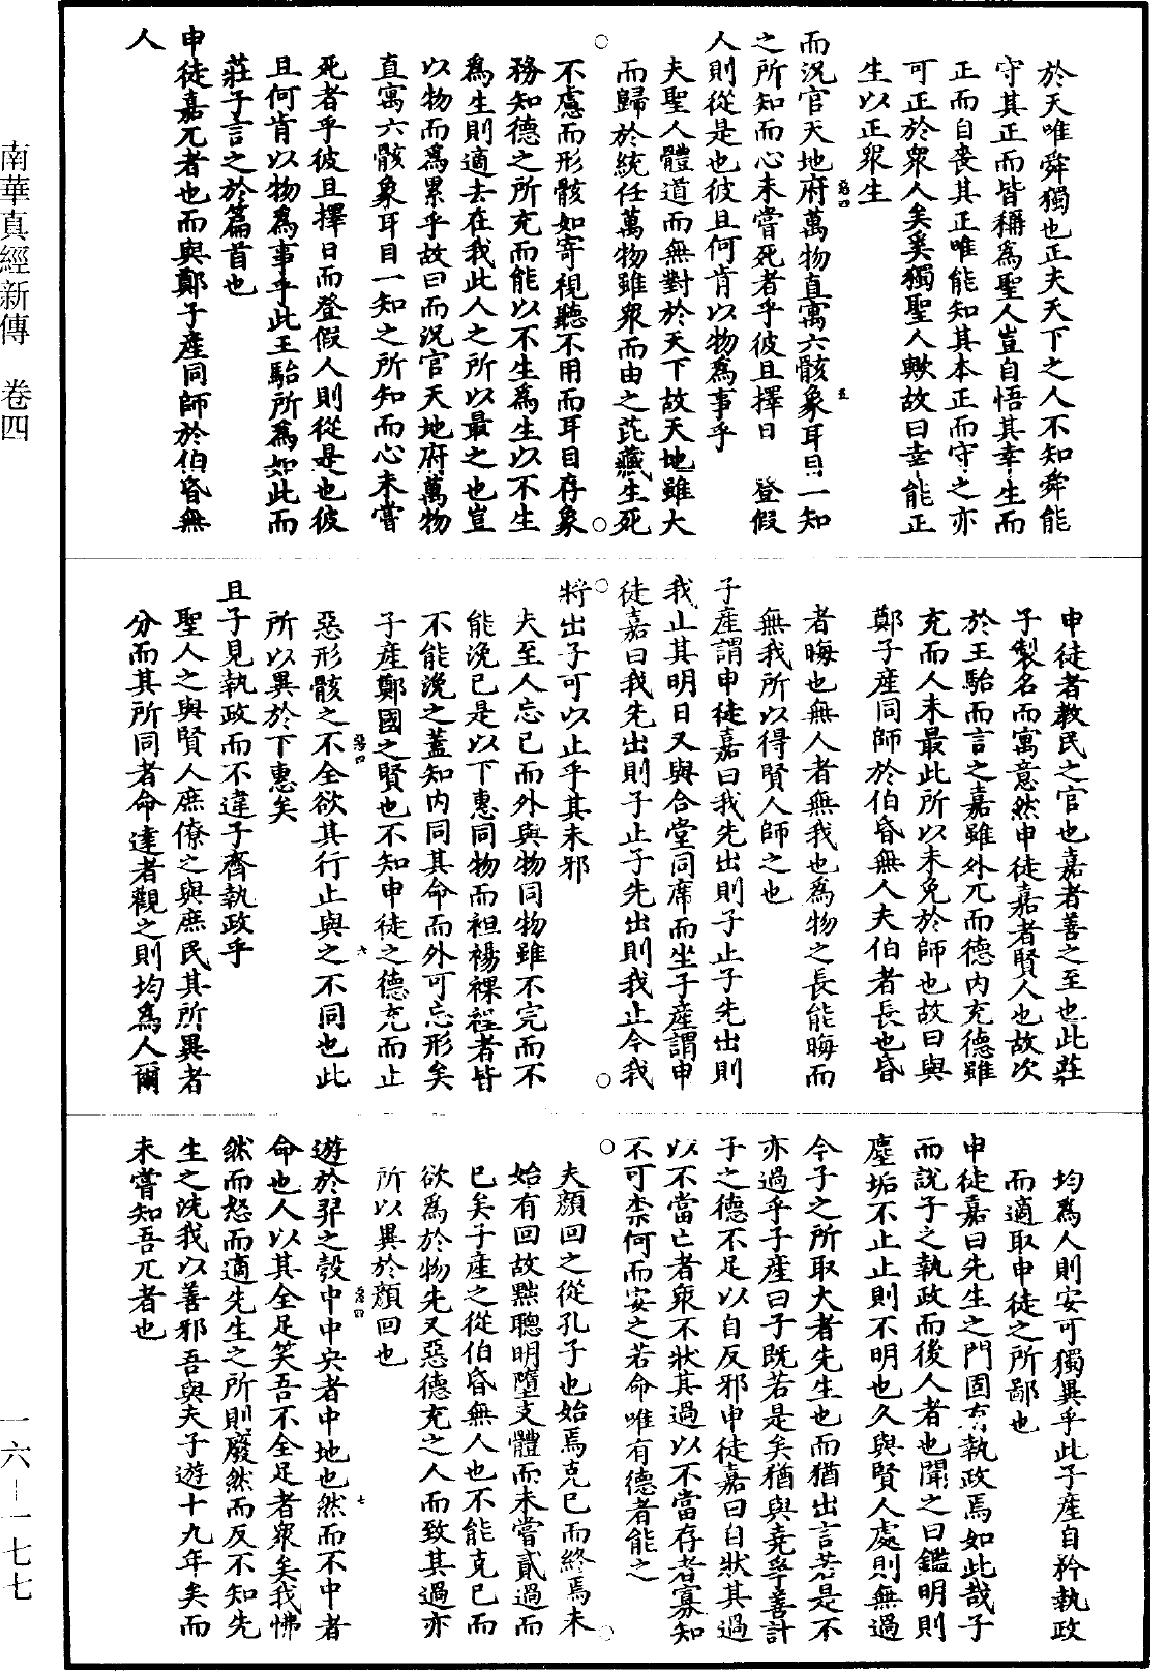 於天唯舜獨也正夫天下之人不知舜能
守其正而皆稱爲聖人豈自悟其幸生而
正而自喪其正唯能知其本正而守之亦
可正於衆人矣奚獨聖人歟故曰幸能正
生以正衆生
而況官天地府萬物直寓六骸象耳目一知
之所知而心未嘗死者乎彼且擇日　登假
人則從是也彼且何肯以物爲事乎
夫聖人體道而無對於天下故天地雖大
而歸於統任萬物雖衆而由之茈藏生死
不慮而形骸如寄視聽不用而耳目存象
務知德之所充而能以不生爲生以不生
爲生則適去在我此人之所以最之也豈
以物而爲累乎故曰而況官天地府萬物
直寓六骸象耳目一知之所知而心未嘗
死者乎彼且擇日而登假人則從是也彼
且何肯以物爲事乎此王駘所爲如此而
莊子言之於篇首也
申徒嘉兀者也而與鄭子產同師於伯昏無
人
申徒者教民之官也嘉者善之至也此莊
子製名而寓意然申徒嘉者賢人也故次
於王駘而言之嘉雖外兀而德內充德雖
充而人未最此所以未免於師也故曰與
鄭子產同師於伯昏無人夫伯者長也昏
者晦也無人者無我也爲物之長能晦而
無我所以得賢人師之也
子產謂申徒嘉曰我先出則子止子先出則
我止其明日又與合堂同席而坐子產謂申
徒嘉曰我先出則子止子先出則我止今我
將出子可以止乎其未邪
夫至人忘己而外與物同物雖不完而不
能浼己是以下惠同物而袒裼裸裎者皆
不能浼之蓋知內同其命而外可忘形矣
子產鄭國之賢也不知申徒之德充而止
惡形骸之不全欲其行止與之不同也此
所以異於下惠矣
且子見執政而不違子齊執政乎
聖人之與賢人庶僚之與庶民其所異者
分而其所同者命達者觀之則均爲人爾
均爲人則安可獨異乎此子產自矜執政
而適取申徒之所鄙也
申徒嘉曰先生之門固有執政焉如此哉子
而說子之執政而後人者也聞之曰鑑明則
塵垢不止止則不明也久與賢人處則無過
今子之所取大者先生也而猶出言若是不
亦過乎子產曰子既若是矣猶與堯爭善計
子之德不足以自反邪申徒嘉曰自狀其過
以不當亡者衆不狀其過以不當存者寡知
不可柰何而安之若命唯有德者能之
夫顏回之從孔子也始焉克己而終焉未
始有回故黜聰明墮支體而未嘗貳過而
已矣子產之從伯昏無人也不能克己而
欲爲於物先又惡德充之人而致其過亦
所以異於顏回也
遊於羿之彀中中央者中地也然而不中者
命也人以其全足笑吾不全足者衆矣我怫
然而怒而適先生之所則廢然而反不知先
生之洗我以善邪吾與夫子遊十九年矣而
未嘗知吾兀者也
南華真經新傳　卷四
一六—一七七